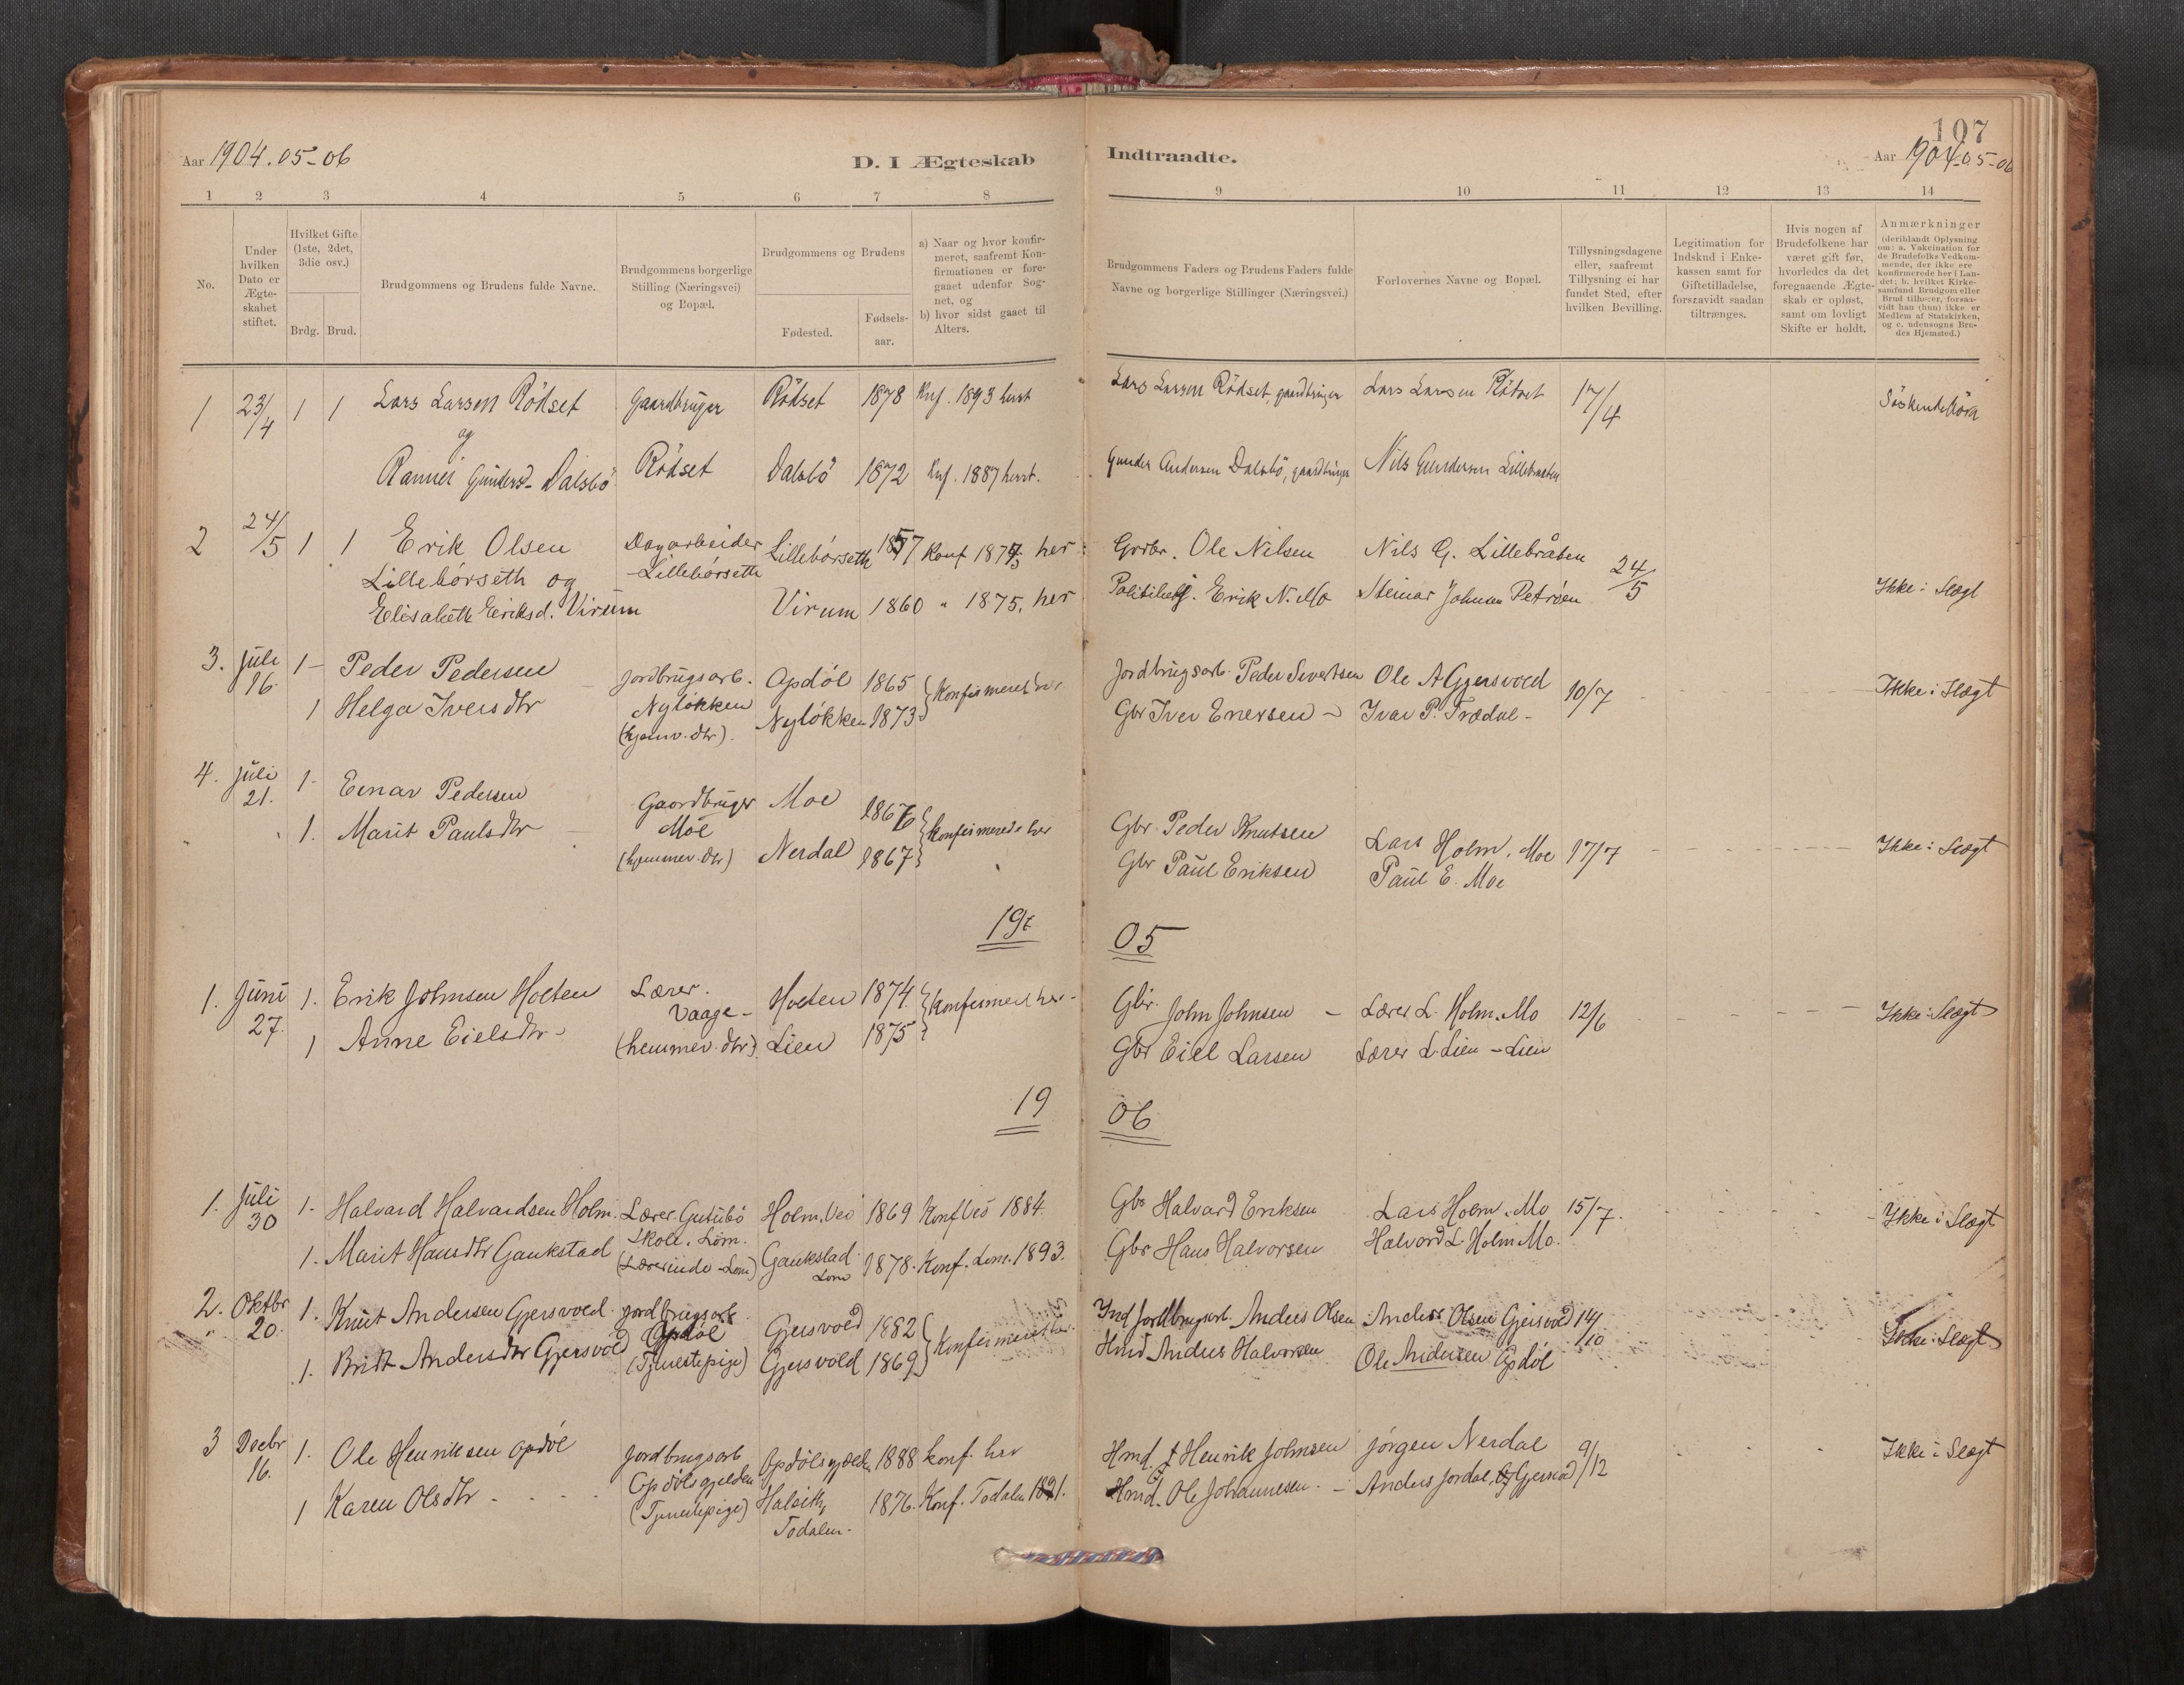 107
Aar 1904.05-06
D. I Ægteskab
Indtraadte.
Aar 1904-05-06
1 2 3 4 5 6 7 8
9 10 11 12 13 14
No.
Under hvilken Dato er Ægte-skabet stiftet.
Hvilket Gifte (1ste, 2det, 3die osv.)
Brdg. Brud.
Brudgommens og Brudens fulde Navne.
Brudgommens borgerlige Stilling (Næringsvei) og Bopæl.
Brudgommens og Brudens
Fødested.
Fødsels-aar.
a) Naar og hvor konfir-meret, saafremt Kon-firmationen er fore-gaaet udenfor Sog-net, og
b) hvor sidst gaaet til Alters.
Brudgommens Faders og Brudens Faders fulde Navne og borgerlige Stillinger (Næringsvei.)
Forlovernes Navne og Bopæl.
Tillysningsdagene eller, saafremt Tillysning ei har fundet Sted, efter hvilken Bevilling.
Legitimation for Indskud i Enke-kassen samt for Giftetilladelse, forsaavidt saadan tiltrænges.
Hvis nogen af Brudefolkene har været gift før, hvorledes da det foregaaende Ægte-skab er opløst, samt om lovligt Skifte er holdt.
Anmærkninger (deriblandt Oplysning om: a. Vakcination for de Brudefolks Vedkom-mende, der ikke ere konfirmerede her i Lan-det; b. hvilket Kirke-samfund Brudgom eller Brud tilhører, forsaa-vidt han (hun) ikke er Medlem af Statskirken, og c. udensogns Bru-des Hjemsted.)
1 23/4 1 1 Lars Larsen Rödset Gaardbruger Rödset 1878 Knf. 1893 herst Lars Larsen Rödset, gaardbruger Lars Larsen Rödset 17/4
og
Gunders- Dalsbö Rödset Dalsbö 1872 Knf. 1887 herst. Gunder Andersen Dalsbö, gaardbruger Nils Gundersen Lillebraaten
2 24/5 1 1 Erik Olsen Dagarbeider Lillebórseth 1857 Konf 1873 her Grbr. Ole Nilsen Nils G. Lillebråten 24/5
Lillebórseth og -Lillebórseth
Elisabeth Eriksd. Virum Virum 1860 " 1875. her Erik N. Mo Steinar Johnsen Petróen Ikke i Slægt
3. Juli 16. 1- Peder Pedersen Jordbrugsarb. Opdöl 1865 Konfirmeret her Jordbrugsarb. Peder Sivertsen Ole A Gjersvold 10/7 Ikke i Slægt
1 Helga Ivers dtr Nylökken (hjemv. dtr). Nylökken 1873 Gbr Iver Enersen - Ivar P. Trædal -
4. Juli 21. 1- Einar Pedersen Gaardbruger Moe Moe 1867 Konfirmerede her Gbr. Peder Knutsen Lars Holm. Moe 17/7 Ikke i Slægt
1. Marit Pauls dtr (hjemmev. dtr) Nerdal 1867 Gbr Paul Eriksen Paul E. Moe
19 05
1. Juni 27. 1. Erik Johnsen Holten Lærer. Vaage - Holten 1874. Konfirmeret her Gbr. John Johnsen - Lærer L. Holm. Mo 12/6 Ikke i Slægt
1 Anne Eiels dtr - (hemmev. dtr). Lien 1875 Gbr Eiel Larsen Lærer L. Lien - Lien
19 06
1. Juli 30 1- Halvard Halvardsen Holm. Lærer. Skole. Lom. Holm. Veö 1869 Konf Veö 1884. Gbr Halvard Eriksen Lars Holm. Mo 15/7. Ikke i Slægt
1. Marit Hansdtr Gaukstad (Lærerinde - Lom) Gaukstad Lom 1878. Konf. Lom. 1893. Gbr Hans Halvorsen Halvard L. Holm Mo.
2. Oktbr 20. 1. Knut Andersen Gjersvold Jordbrugsarb. Opdöl Gjersvold 1882 Konfirmeret her Ind Jordbrugsarb. Anders Olsen Anders Olsen Gjersvold 14/10 Ikke i Slægt
1. Britt Andersdtr Gjersvold (Tjenestepige) Gjersvold 1869 Hmd Anders Halvorsen Ole Andersen Opdöl
3 Decbr 16. 1. Ole Henriksen Opdöl Jordbrugsarb Opdölsgjelden Opdölsgjelden 1888 konf. her Hmd. † Henrik Johnsen Jörgen Nerdal 9/12 Ikke i Slægt
1 Karen Olsdtr - (Tjenestepige) Todalen - 1876. Konf. Todalen 1891. Hmd. Ole Johannesen. - Anders Jordal, Gjersvold